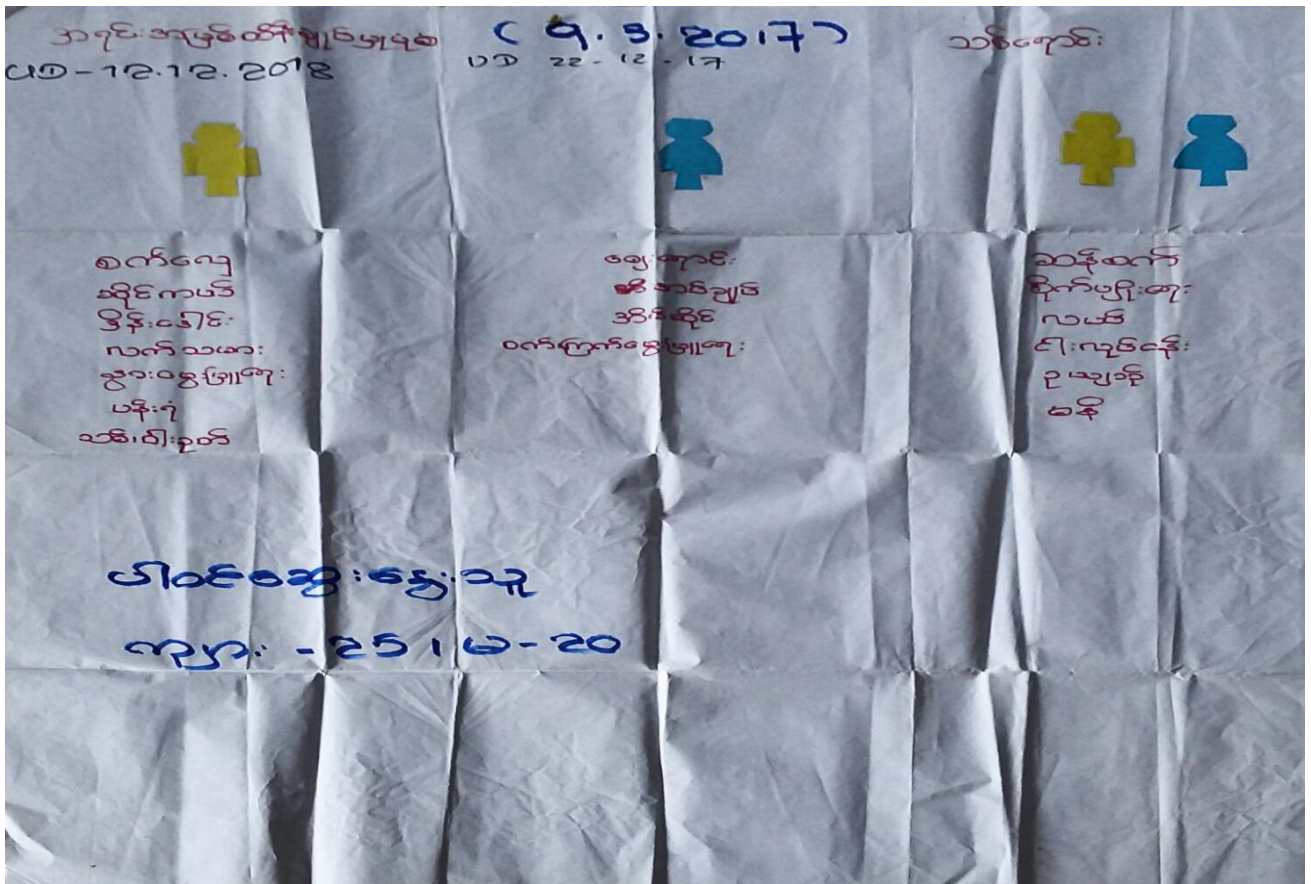 အရင်းအမြစ်ထိန်းချုပ်မှုပုံစံ (9.3.2017) သစ်ရောင်း
UD-12.12.2018 UD 22-12-17
စက်လှေ
ဆိုင်ကယ်
ဒိန်းဒေါင်း
လက်သမား
နွားမွေးမြူရေး
ပန်းရံ
သစ်၊ဝါးခုတ်
ဈေးရောင်း
အပ်ချုပ်
အိမ်ဆိုင်
ဝက်ကြက်မွေးမြူရေး
ဆန်စက်
စိုက်ပျိုးရေး
လယ်
ငါးလုပ်ငန်း
ဥယျာဉ်
မုန့်
ပါဝင်ဆွေးနွေးသူ
ကျား - 25 ၊ မ - 20